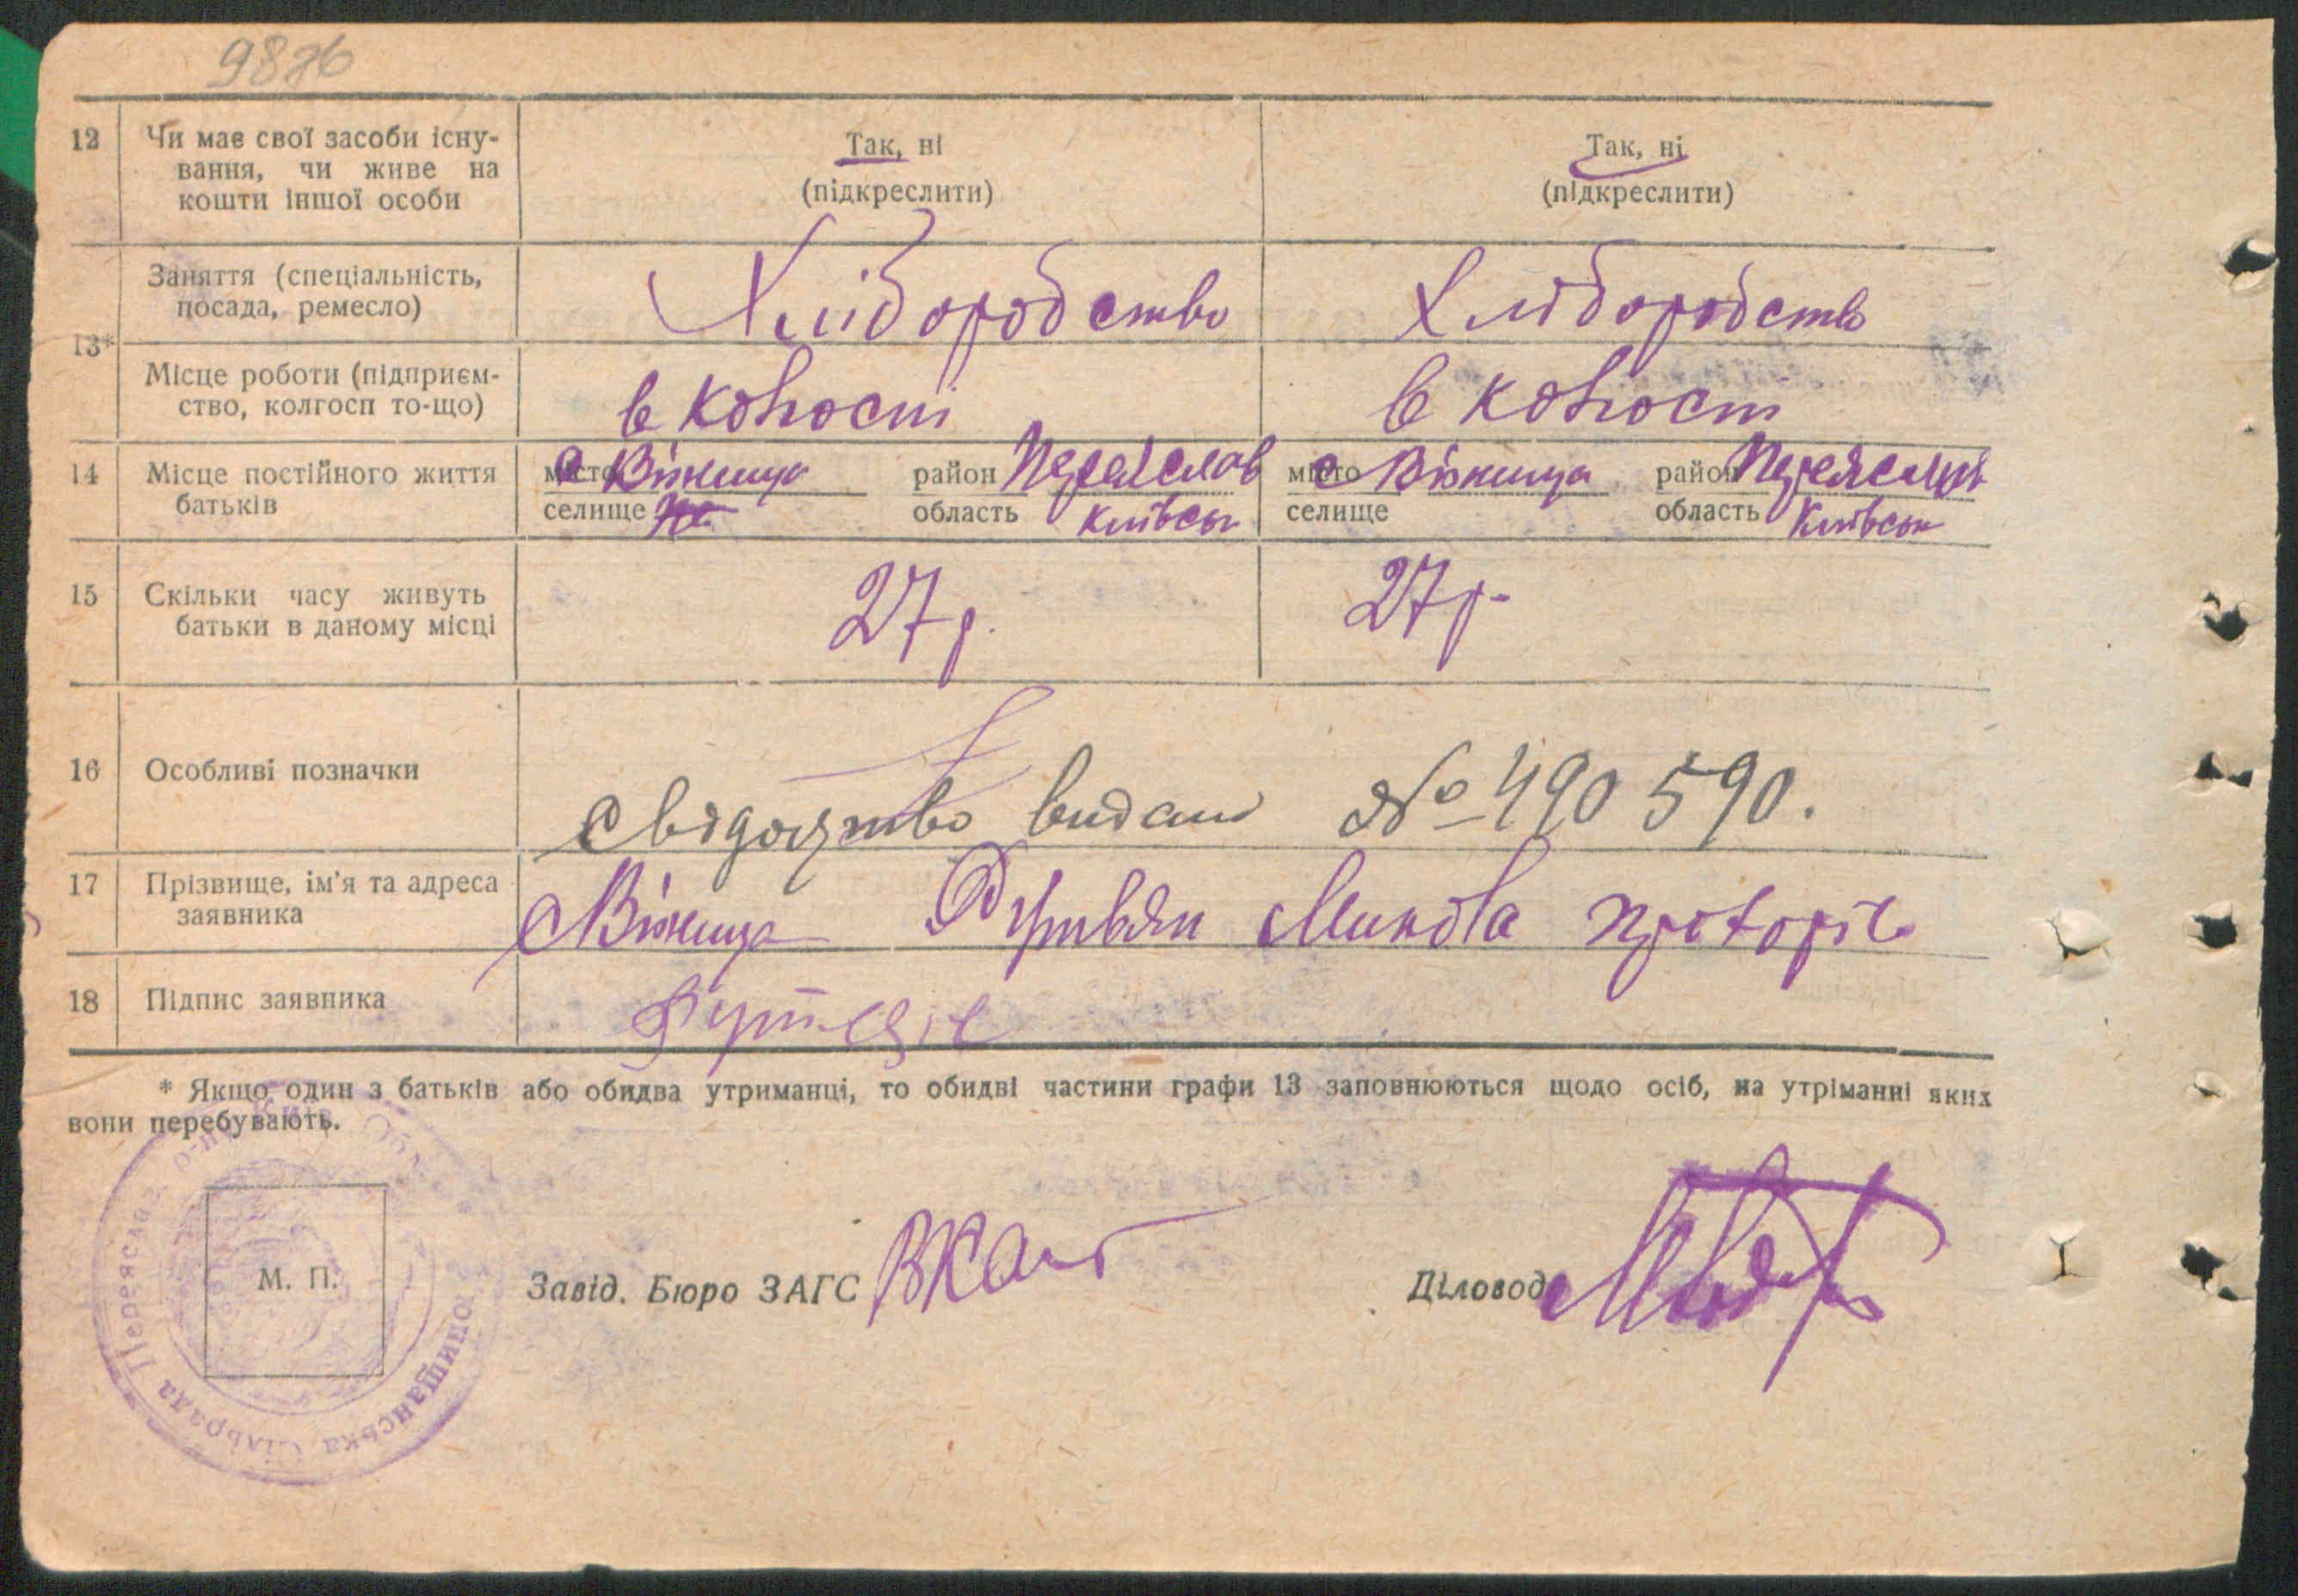 9876
12 Чи має свої засоби існу- Так, ні Так, ні
вання, чи живе на (підкреслити) (підкреслити)
кошти іншої особи
13* Заняття (спеціальність, Хліборобство Хліборобство
посада, ремесло)
Місце роботи (підприєм- в колгоспі в колгосп
ство, колгосп то-що)
14 Місце постійного життя місто с Віниця район Переяслав місто с Віниця район Переяслав
батьків селище область Київськ селище область Київськ
15 Скільки часу живуть 27 р. 27 р.
батьки в даному місці
16 Особливі позначки
свідоцтво видано № 490590.
17 Прізвище, ім'я та адреса Микола
заявника
18 Підпис заявника
* Якщо один з батьків або обидва утриманці, то обидві частини графи 13 заповнюються щодо осіб, на утріманні яких
вони перебувають.
М. П.
Завід. Бюро ЗАГС
Діловод
Сільрада Переяслав